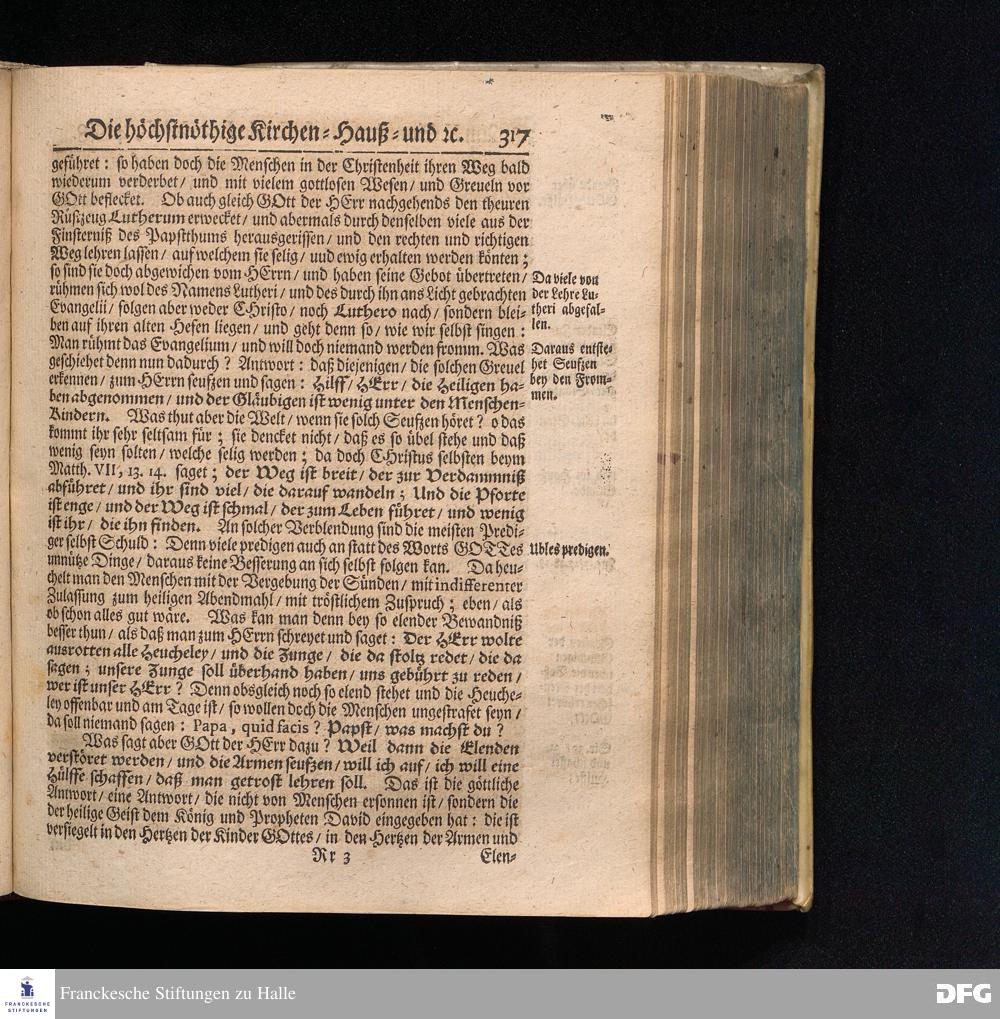 Die höchstnöthige Kirchen-Hauß-und ꝛc. 317
geführet: so haben doch die Menschen in der Christenheit ihren Weg bald
wiederum verderbet/ und mit vielem gottlosen Wesen/ und Greueln vor
GOtt beflecket. Ob auch gleich GOtt der HErr nachgehends den theuren
Rüstzeug Lutherum erwecket/ und abermals durch denselben viele aus der
Finsterniß des Papstthums herausgerissen/ und den rechten und richtigen
Weg lehren lassen/ auf welchem sie selig/ uud ewig erhalten werden könten;
so sind sie doch abgewichen vom HErrn/ und haben seine Gebot übertreten/
rühmen sich wol des Namens Lutheri/ und des durch ihn ans Licht gebrachten
Evangelii/ folgen aber weder CHristo/ noch Luthero nach/ sondern blei-
ben auf ihren alten Hefen liegen/ und geht denn so/ wie wir selbst singen:
Man rühmt das Evangelium/ und will doch niemand werden fromm. Was
geschiehet denn nun dadurch? Antwort: daß diejenigen/ die solchen Greuel
erkennen/ zum HErrn seufzen und sagen: Hilff/ HErr/ die Heiligen ha-
ben abgenommen/ und der Gläubigen ist wenig unter den Menschen-
Kindern. Was thut aber die Welt/ wenn sie solch Seufzen höret? o das
kommt ihr sehr seltsam für; sie dencket nicht/ daß es so übel stehe und daß
wenig seyn solten/ welche selig werden; da doch CHristus selbsten beym
Matth. VII, 13. 14. saget; der Weg ist breit/ der zur Verdammniß
abführet/ und ihr sind viel/ die darauf wandeln; Und die Pforte
ist enge/ und der Weg ist schmal/ der zum Leben führet/ und wenig
ist ihr/ die ihn finden. An solcher Verblendung sind die meisten Predi-
ger selbst Schuld: Denn viele predigen auch an statt des Worts GOTTes
unnütze Dinge/ daraus keine Besserung an sich selbst folgen kan. Da heu-
chelt man den Menschen mit der Vergebung der Sünden/ mit indifferenter
Zulassung zum heiligen Abendmahl/ mit tröstlichem Zuspruch; eben/ als
ob schon alles gut wäre. Was kan man denn bey so elender Bewandniß
besser thun/ als daß man zum HErrn schreyet und saget: Der HErr wolte
ausrotten alle Heucheley/ und die Zunge/ die da stoltz redet/ die da
sagen; unsere Zunge soll überhand haben/ uns gebührt zu reden/
wer ist unser HErr? Denn obsgleich noch so elend stehet und die Heuche-
ley offenbar und am Tage ist/ so wollen doch die Menschen ungestrafet seyn/
da soll niemand sagen: Papa, quid facis? Papst/ was machst du?
Was sagt aber GOtt der HErr dazu? Weil dann die Elenden
verstöret werden/ und die Armen seufzen/ will ich auf/ ich will eine
Hülffe schaffen/ daß man getrost lehren soll. Das ist die göttliche
Antwort/ eine Antwort/ die nicht von Menschen ersonnen ist/ sondern die
der heilige Geist dem König und Propheten David eingegeben hat: die ist
versiegelt in den Hertzen der Kinder GOttes/ in den Hertzen der Armen und
Rr 3 Elen-
Da viele von
der Lehre Lu-
theri abgefal-
len.
Daraus entste-
het Seufzen
bey den From-
men.
Ubles predigen.
FRANCKESCHE
STIFTUNGEN
Franckesche Stiftungen zu Halle
DFG